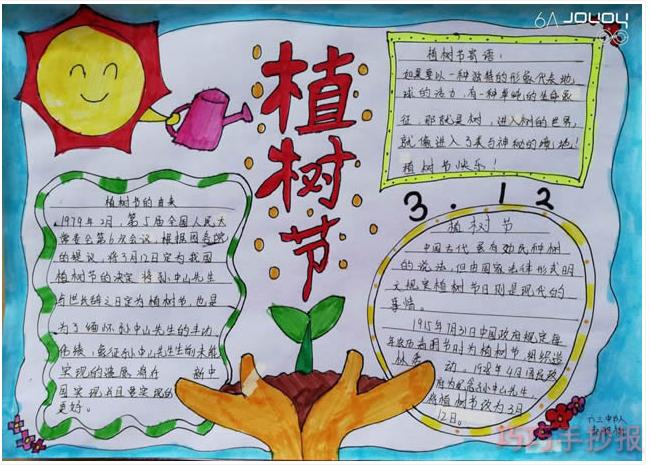 植树节
植树节寄语：
如果要以一种独特的形象代表地
球的活力，有一种单纯的生命象
征，那就是树，进入树的世界，
就像进入了美与神秘的境地！
植树节快乐！
3.12
植树节的由来
1979年2月，第5届全国人民大
常委会第6次会议，根据国务院
的提议，将3月12日定为我国
植树节的决定 将孙中山先生
与世长辞之日定为植树节，也是
为了缅怀孙中山先生的丰功
伟绩，象征孙中山先生生前未能
实现的遗愿 新中
国实现并且要实现的
更好。
植树节
中国古代虽有劝民种树
的说法，但由国家法律形式明
文规定植树节日则是现代的
事情。
1915年7月31日中国政府规定每
年农历清明节时为植树节，组织造
林 动。1928年4月国民政
府为纪念孙中山先生
将植树节改为3月
12日。
JOYOY
1575手抄报